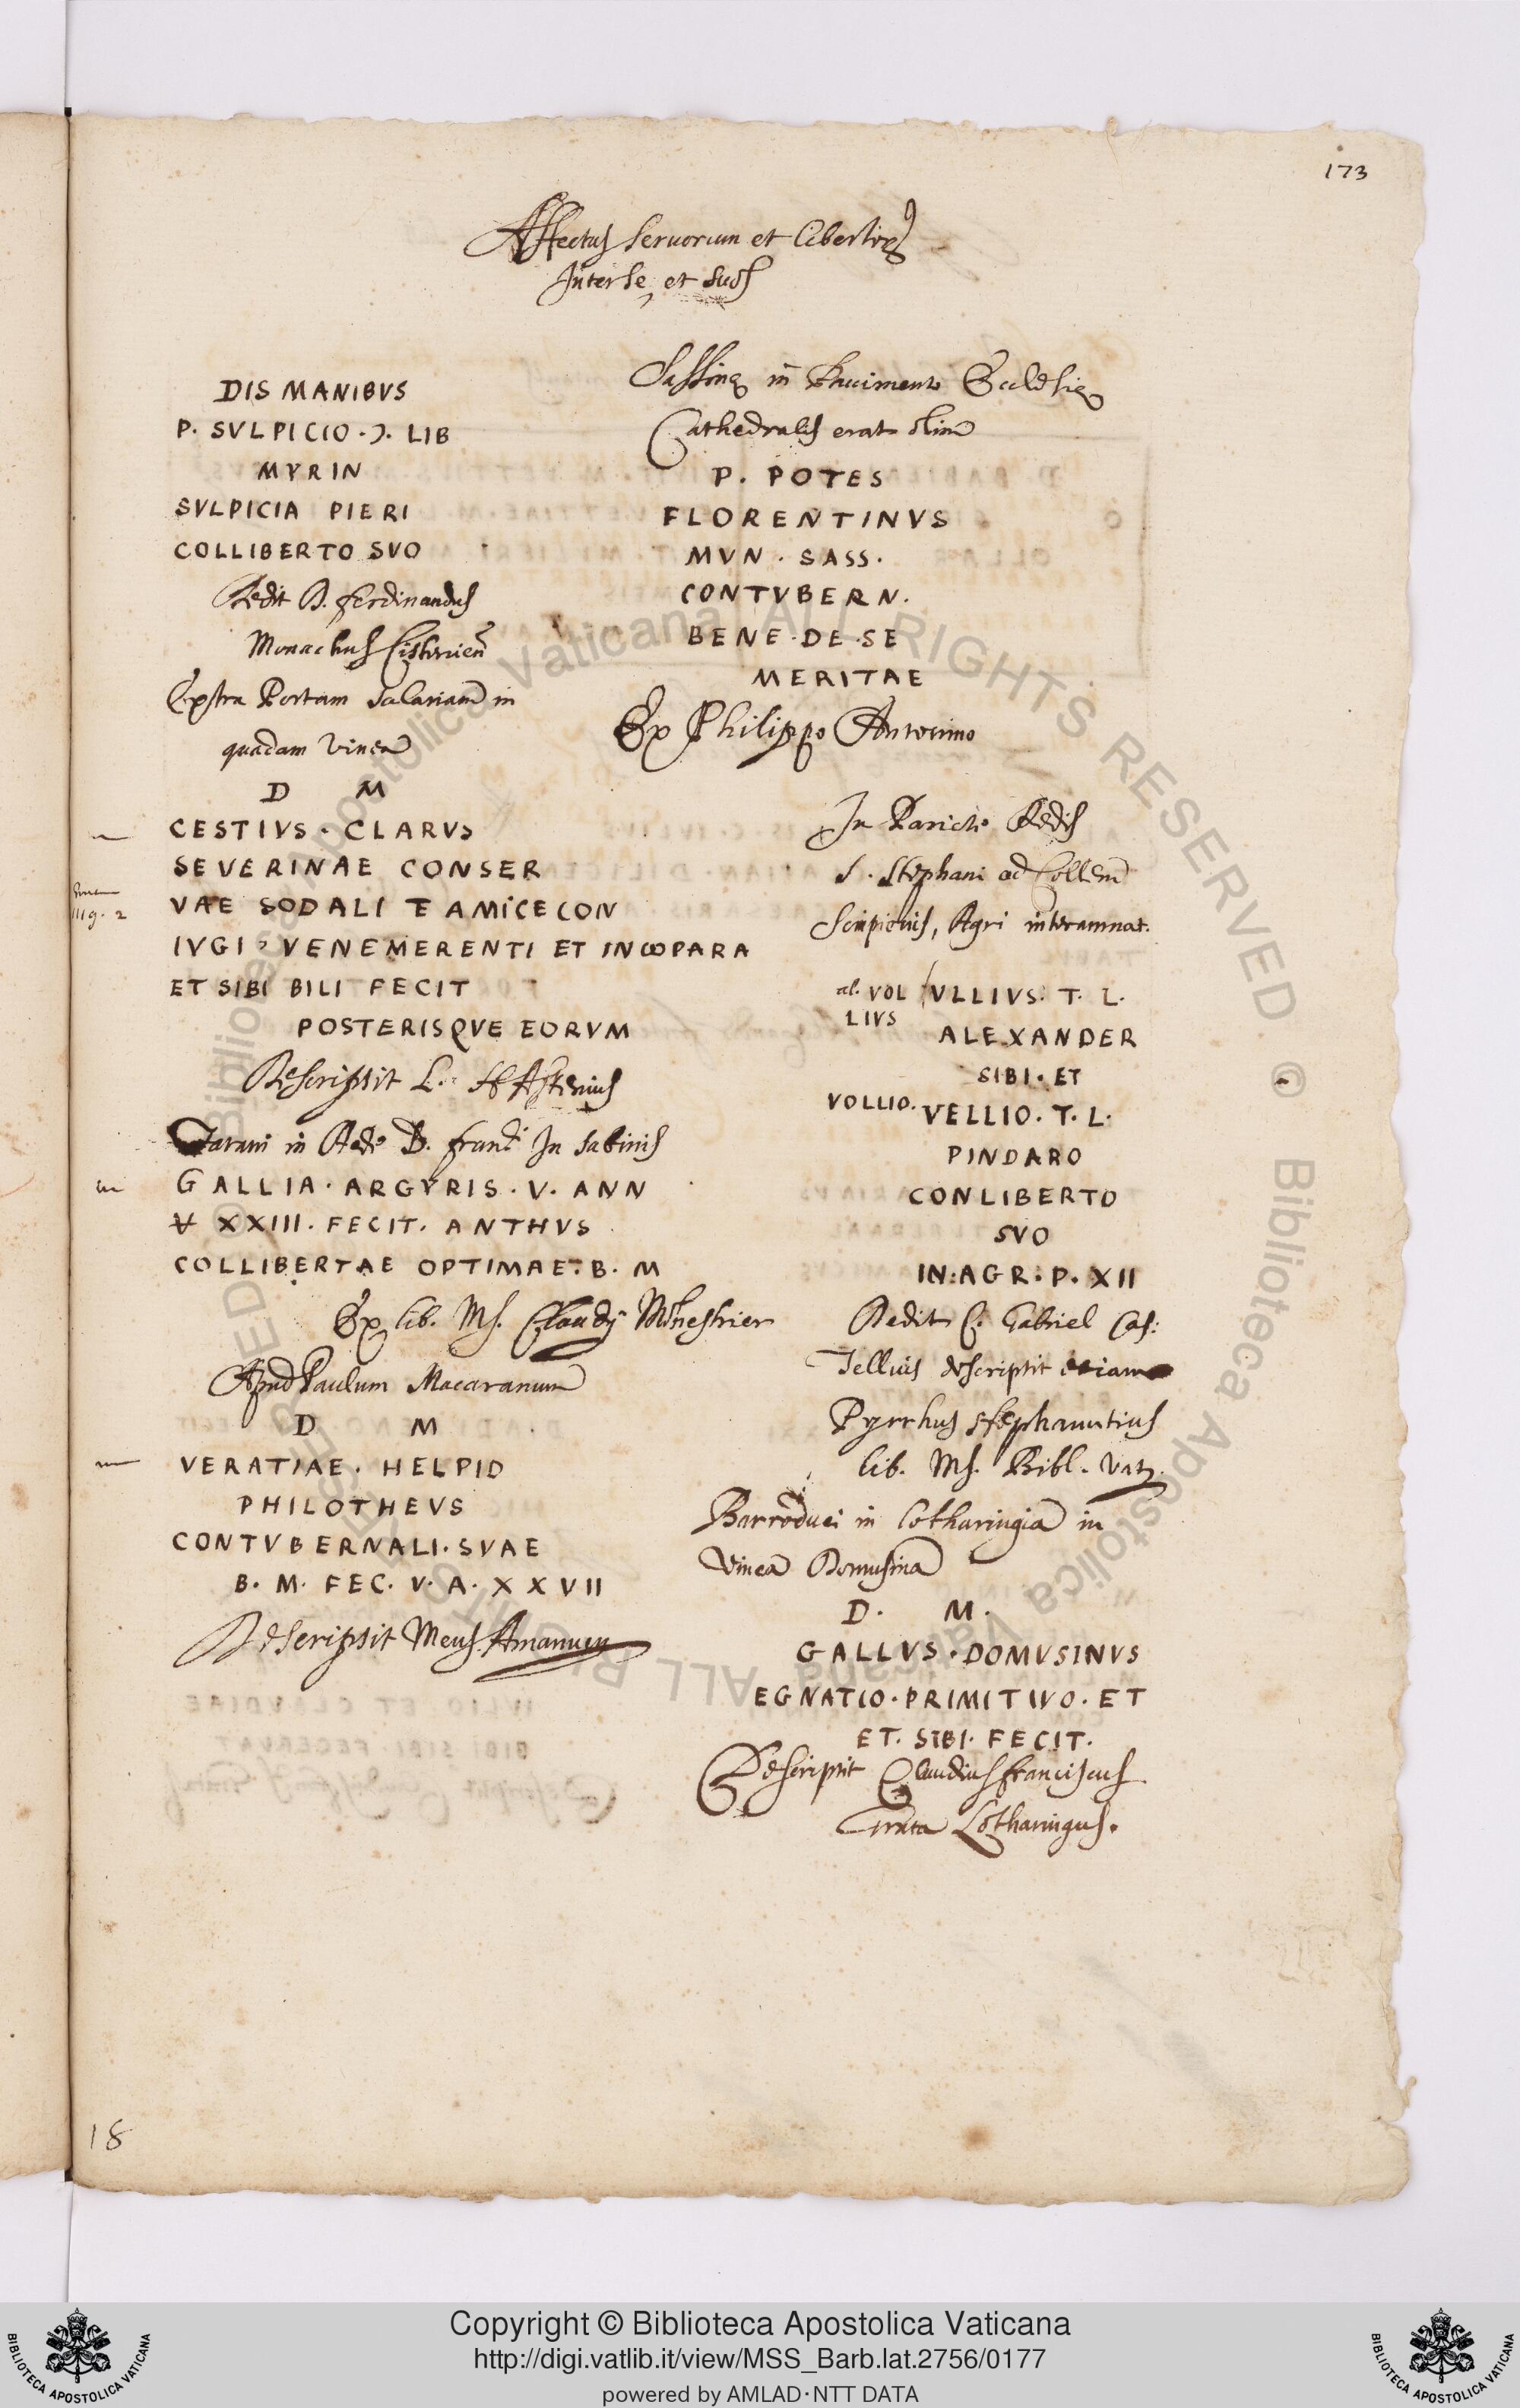 173
Affectus Seruorum et libertor
Inter se, et suos
DIS MANIBVS
P. SVLPICIO · Ɔ. LIB
MYRIN
SVLPICIA PIERI
COLLIBERTO SVO
Dedit D. ferdinandus
Monachus Cisterciens
Extra Portam Salariam in
quadam Vinea
D M
CESTIVS · CLARVS
SEVERINAE CONSER
VAE SODALI E AMICE CON
IVGI VENEMERENTI ET INCOPARA
ET SIBI BILI FECIT
POSTERISQVE EORVM
Descripsit L. Holstenius
Tarani in Aede D. franc In Sabinis
GALLIA · ARGYRIS · V · ANN
V XXIII · FECIT · ANTHVS
COLLIBERTAE OPTIMAE · B · M
Ex lib. Ms. Claudij Menestrier
Apud Paulum Macaranum
D M
VERATIAE · HELPID
PHILOTHEVS
CONTVBERNALI · SVAE
B · M · FEC · V · A · XXVII
Descripsit Meus Amanuen
Sassinae in Pauimento Ecclesiae
Cathedralis erat olim
P. POTES
FLORENTINVS
MVN · SASS ·
CONTVBERN.
BENE · DE · SE
MERITAE
Ex Philippo Antonino
In Pariete Aedis
S. Stephani ad Collem
Scipionis, Agri interamnat.
al. VOL VLLIVS · T · L ·
LIVS
ALEXANDER
SIBI · ET
VOLLIO. VELLIO · T · L ·
PINDARO
CONLIBERTO
SVO
IN · AGR · P · XII
Dedit C. Gabriel Cas:
Telluis descripsit etiam
Pyrrhus Stephanutius
lib. Ms. Bibl. Vat.
Barroduci in Lotharingia in
Vinea Domusina
D · M ·
GALLVS · DOMVSINVS
EGNATIO · PRIMITIVO · ET
ET · SIBI · FECIT ·
Descripsit Claudius franciscus
Lotharingus.
18
Copyright © Biblioteca Apostolica Vaticana
http://digi.vatlib.it/view/MSS_Barb.lat.2756/0177
powered by AMLAD·NTT DATA
BIBLIOTECA APOSTOLICA VATICANA
BIBLIOTECA APOSTOLICA VATICANA